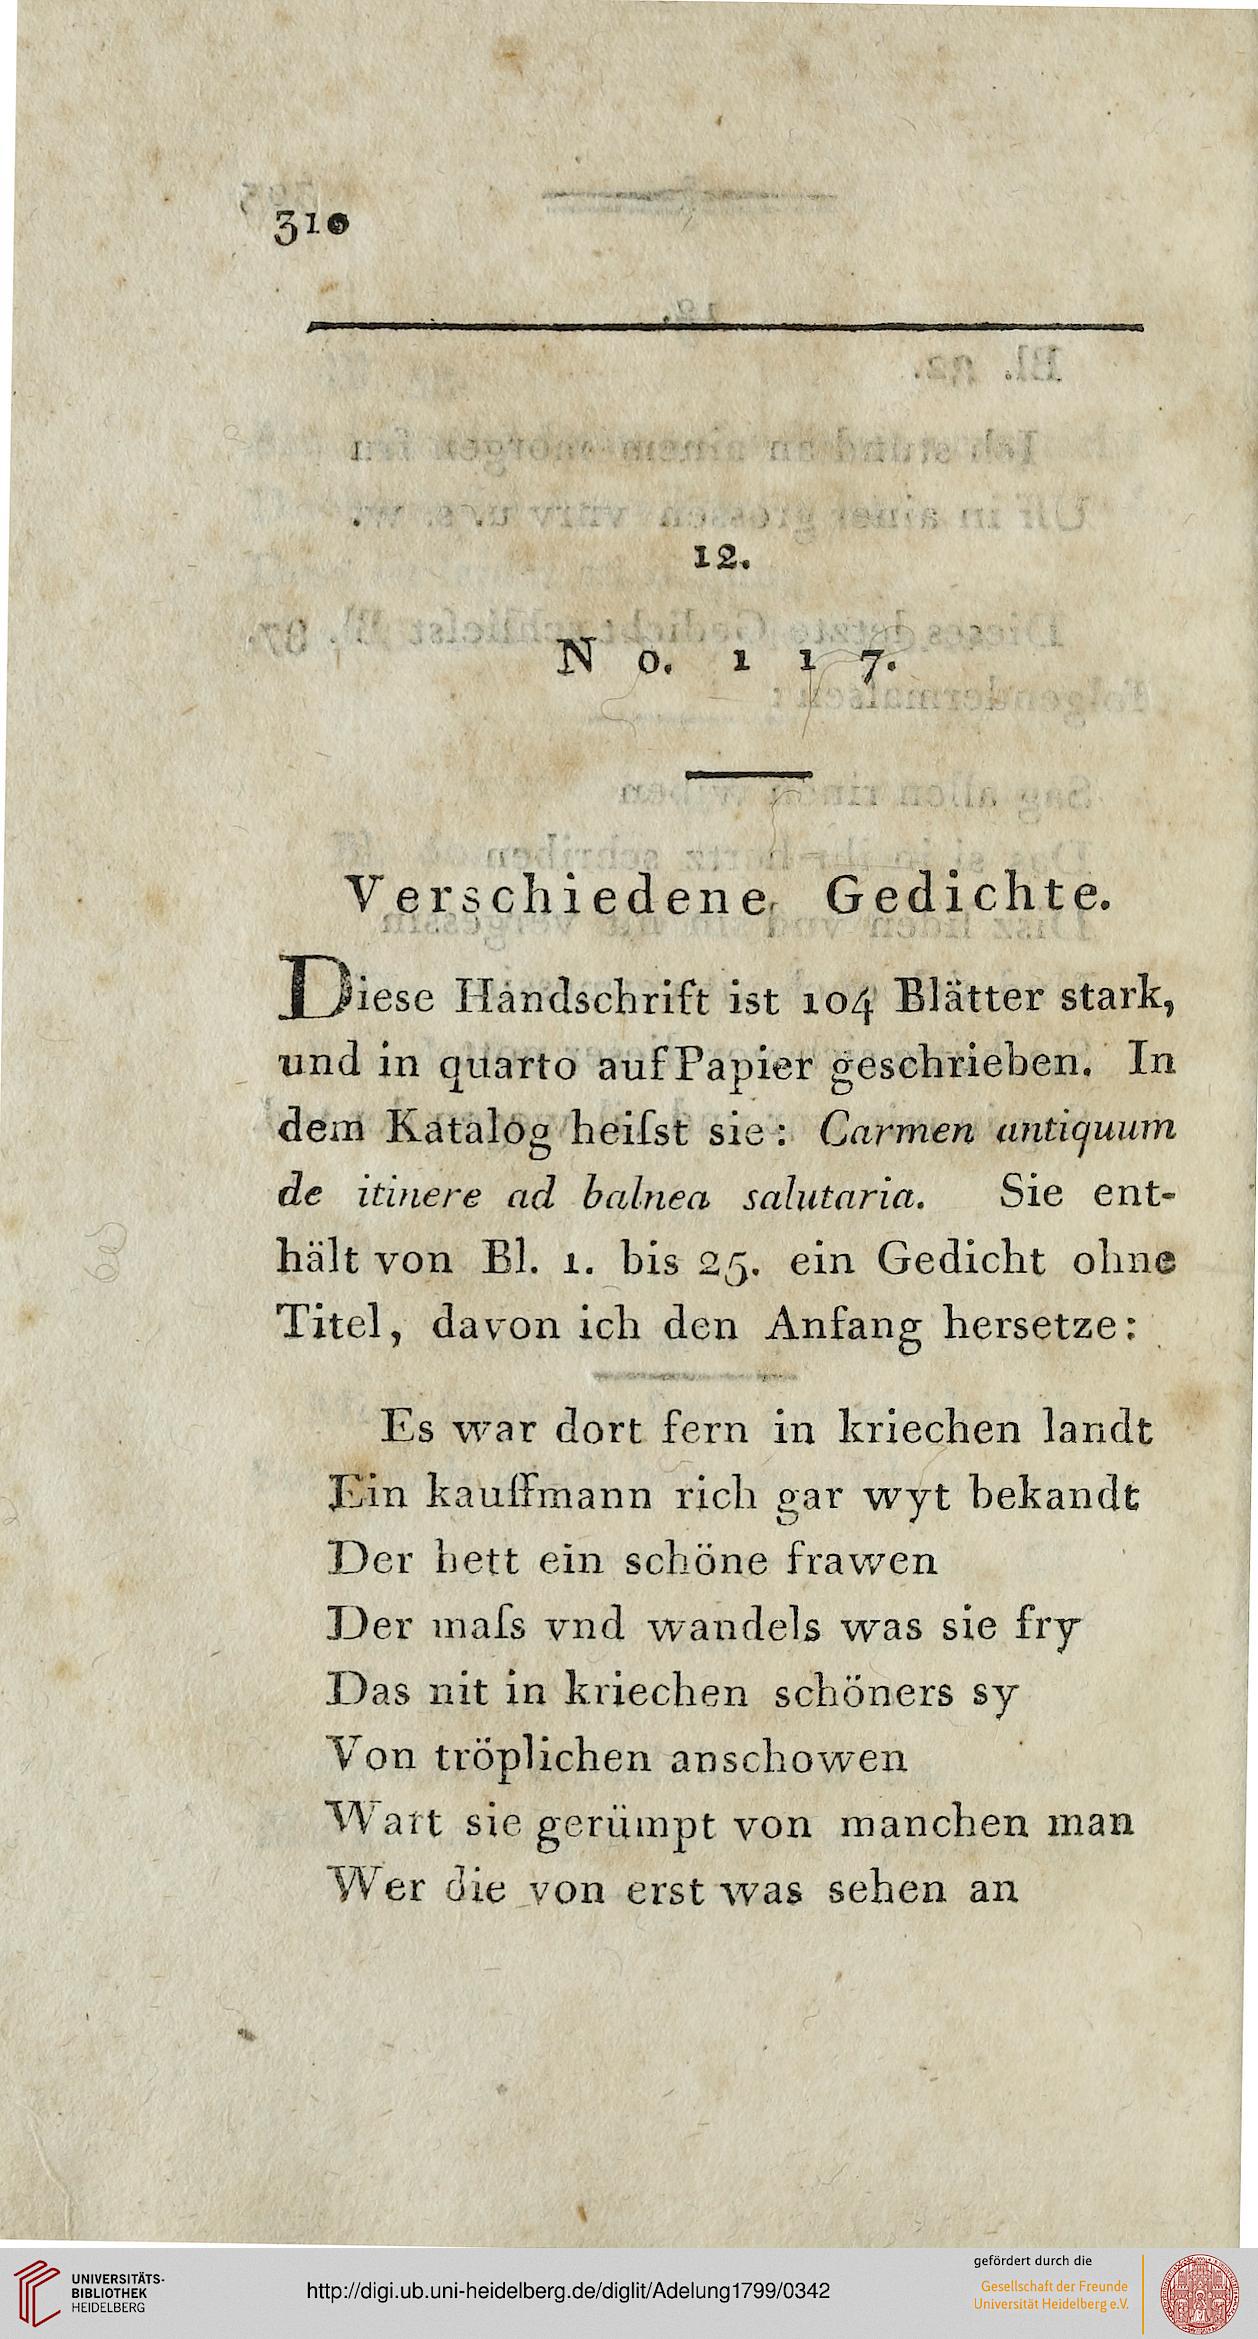 310
12.
No. 117.
Verschiedene Gedichte.
Diese Handschrift ist 104 Blätter stark,
und in quarto auf Papier geschrieben. In
dem Katalog heiſst sie: Carmen antiquum
de itinere ad balnea salutaria. Sie ent-
hält von Bl. 1. bis 25. ein Gedicht ohne
Titel, davon ich den Anfang hersetze:
Es war dort fern in kriechen landt
Ein kauffmann rich gar wyt bekandt
Der hett ein schöne frawen
Der maſs vnd wandels was sie fry
Das nit in kriechen schöners sy
Von tröplichen anschowen
Wart sie gerümpt von manchen man
Wer die von erst was sehen an
UNIVERSITÄTS-
BIBLIOTHEK
HEIDELBERG
http://digi.ub.uni-heidelberg.de/diglit/Adelung1799/0342
gefördert durch die
Gesellschaft der Freunde
Universität Heidelberg e.V.